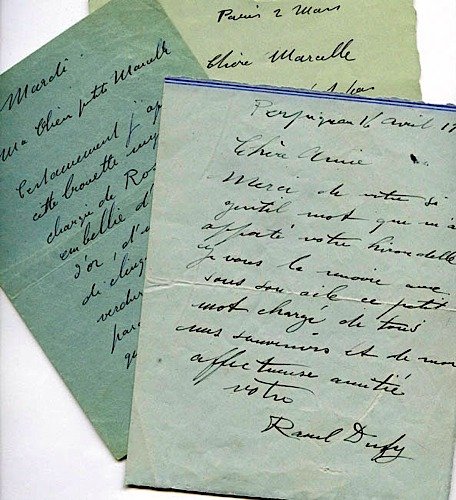 Paris 2 Mars
Chère Marcelle
Mardi
Ma Chère petite Marcelle
Certainement j'ap
cette brouette
chargée de Ro
embellie d
d'or, d'
de
verdu
par
Perpignan 16 avril 19
Chère Amie
Merci de votre si
gentil mot que m'a
apporté votre hirondelle
je vous la renvoie avec
sous son aile ce petit
mot chargé de tous
mes souvenirs et de mon
affectueuse amitié
votre
Raoul Dufy